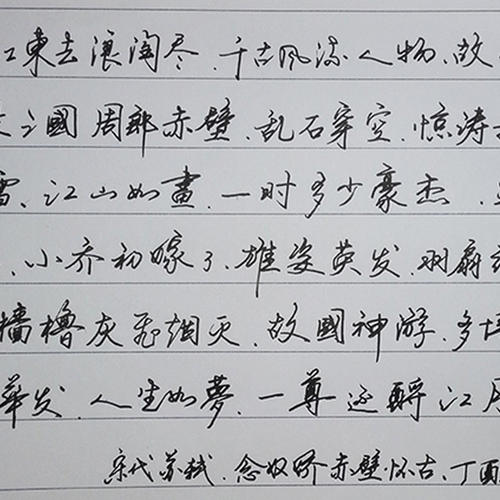 江東去浪淘尽.千古風流人物,故
之國周郎赤壁.乱石穿空.惊涛
雪.江山如畫.一时多少豪杰.
.小乔初嫁了.雄姿英发.羽扇
墙櫓灰飛烟灭.故國神游.多情
華发.人生如夢.一尊还酹江月
宋代苏轼.念奴娇赤壁怀古.丁酉